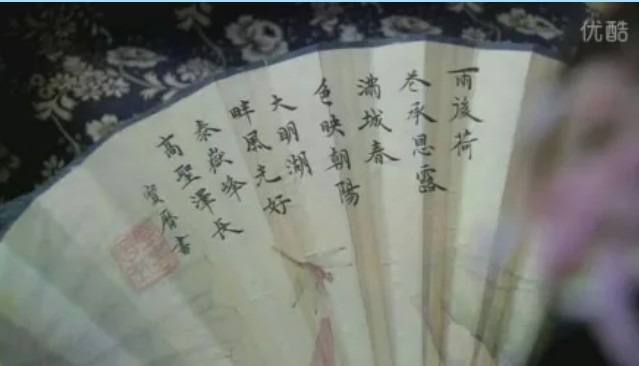 优酷
雨後荷
花承恩露
滿城春
色映朝陽
大明湖
畔風光好
泰嶽峰
高聖澤長
書